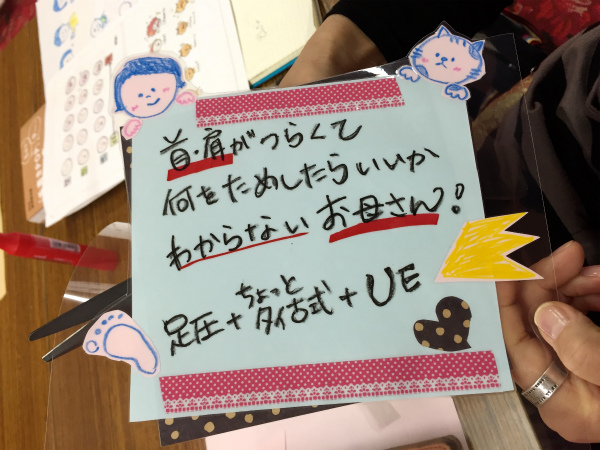 首・肩がつらくて
何をためしたらいいか
わからないお母さん!
ちょっと
足圧+タイ古式+UE